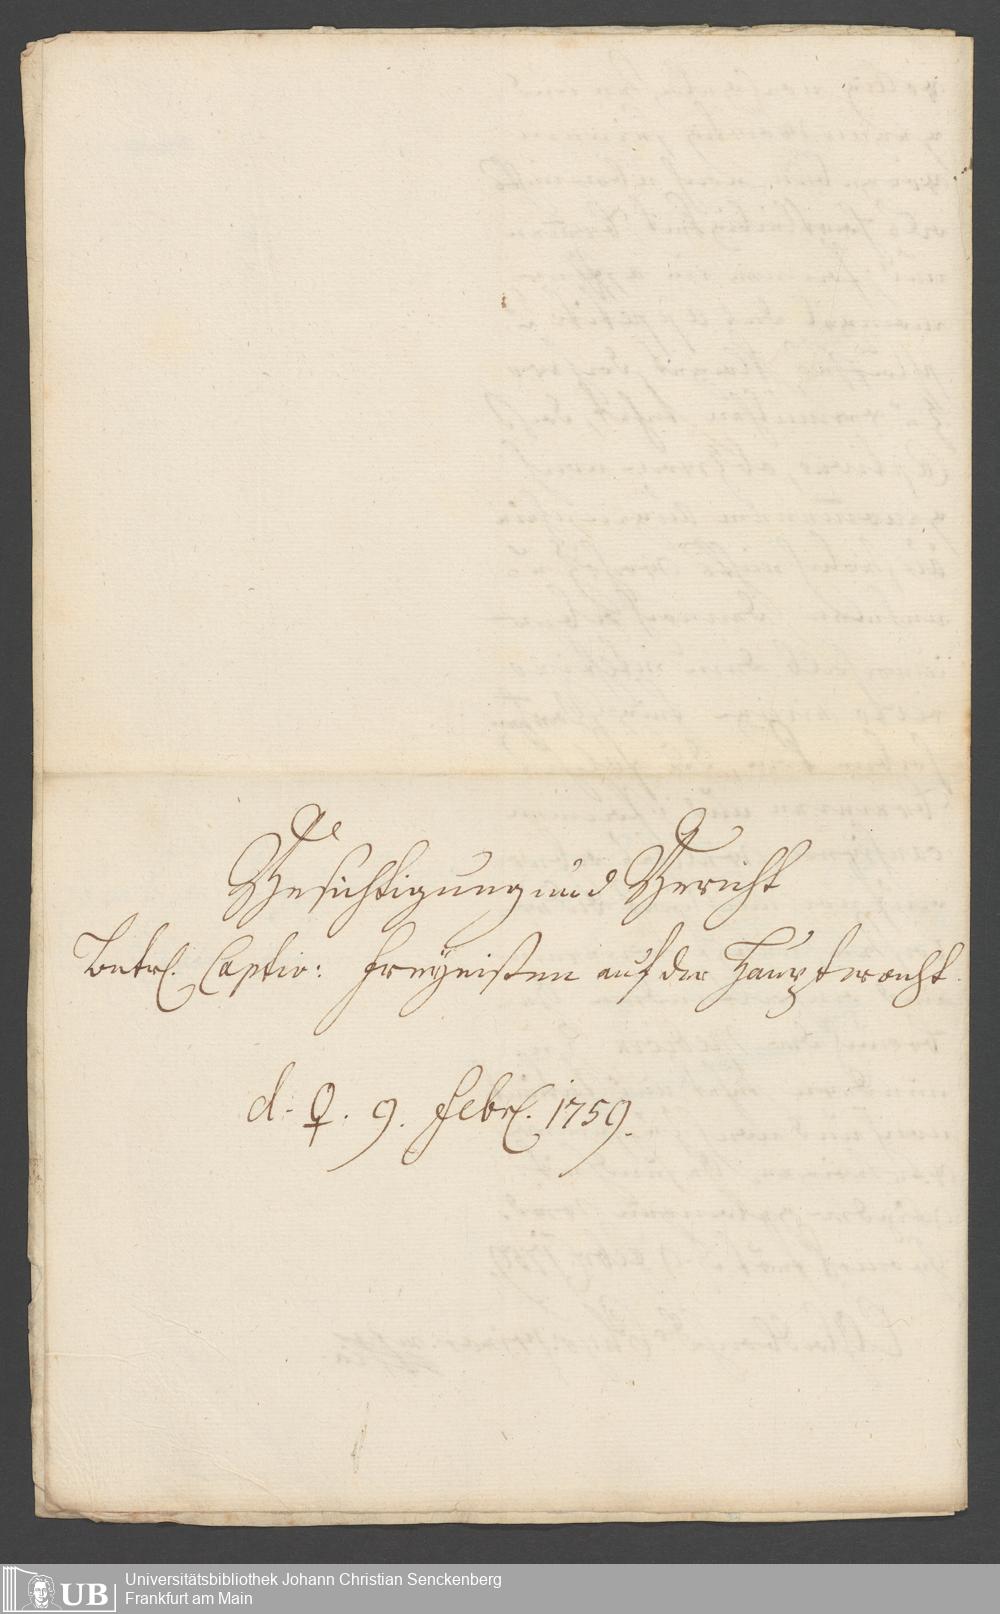 Besichtigung und Bericht
betrf. Captiv: Freyeisen auf der Hauptwacht.
d. ♀. 9. Febr. 1759.
UB
Universitätsbibliothek Johann Christian Senckenberg
Frankfurt am Main